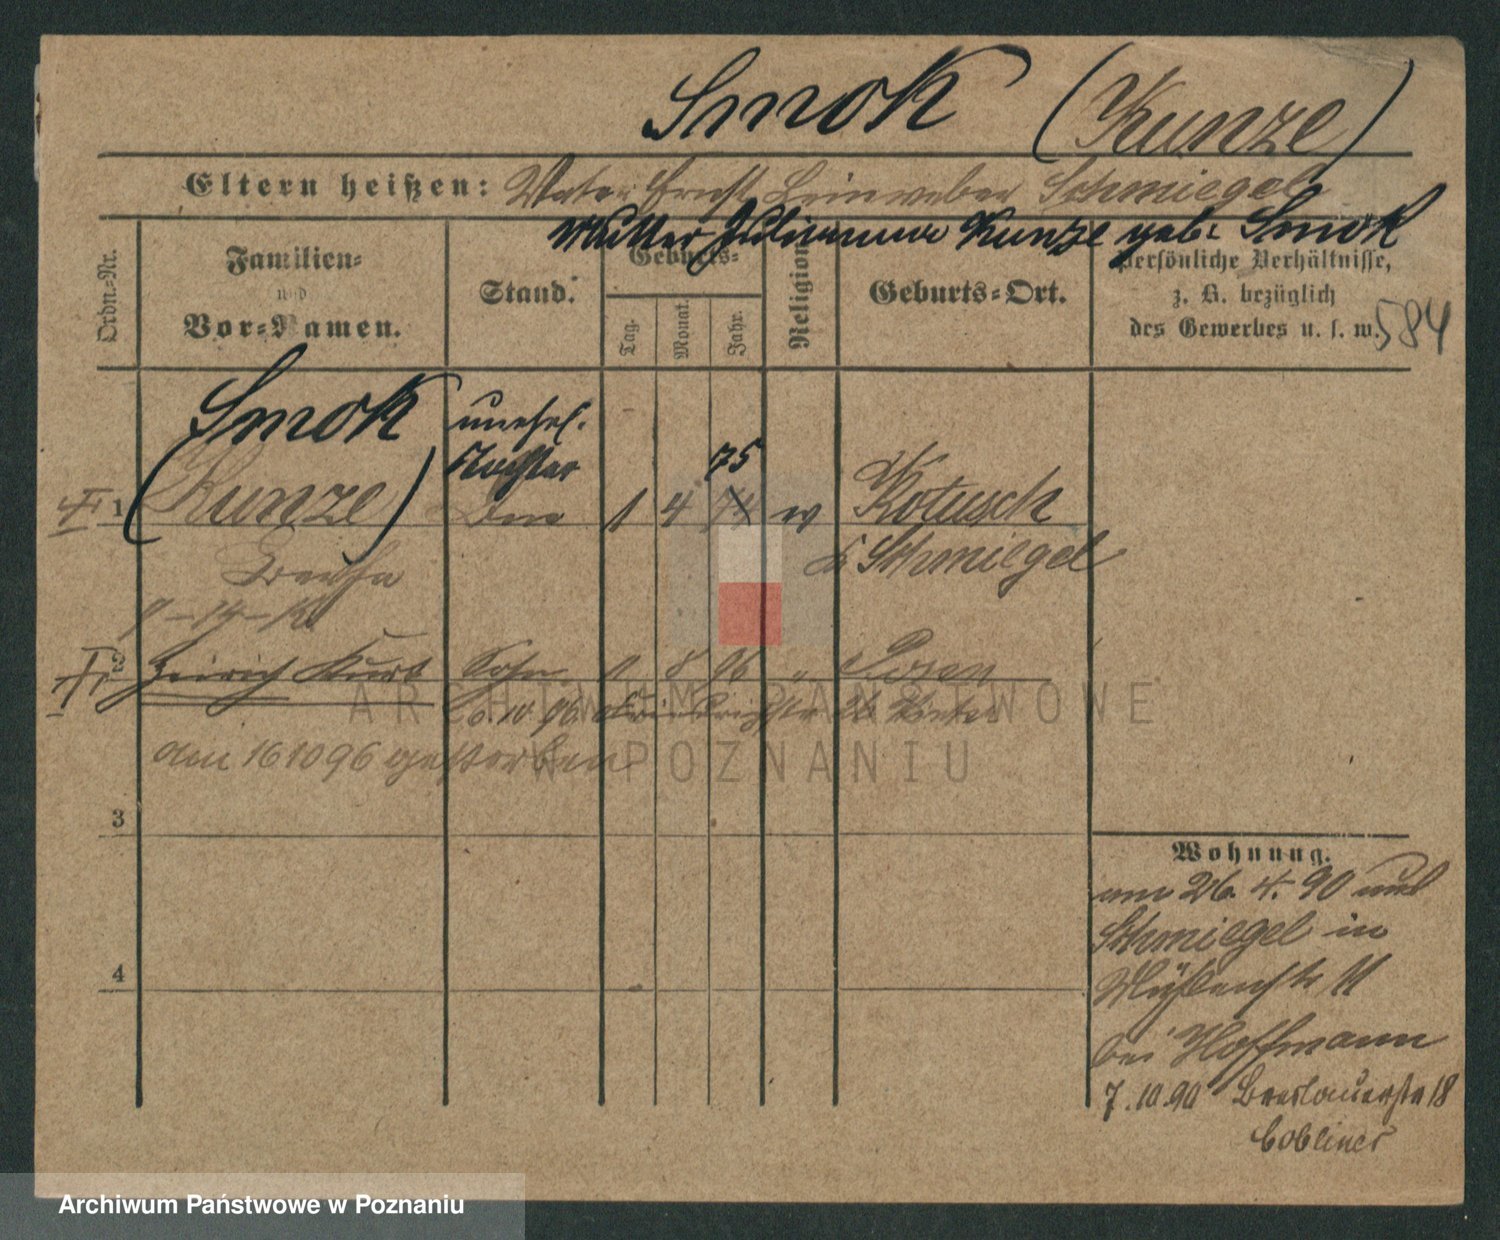 Smok (Kunze)
Eltern heißen: Vater Ernst Leinweber Schmiegel
Mutter Julianna Kunze geb: Smok
Ordn.-Nr.
Familien-
und
Vor-Namen.
Stand.
Geburts-
Tag.
Monat.
Jahr.
Religion
Geburts-Ort.
persönliche Verhältnisse,
z. B. bezüglich
des Gewerbes u. s. w.
584
Smok
unehel.
Tochter
75
1 (Kunze) 1 4 74 w Kotusch
Bertha
b Schmiegel
2 Heinrich Kurt Sohn 1 8 96 " Posen
6.10.96.
den 16 10 96 gestorben
3
4
Wohnung.
am 26. 4. 90 aus
Schmiegel in
Mühlenstr 11
bei Hoffmann
7.10.90 Breslauerstr 18
Cobliner
ARCHIWUM PAŃSTWOWE
W POZNANIU
Archiwum Państwowe w Poznaniu